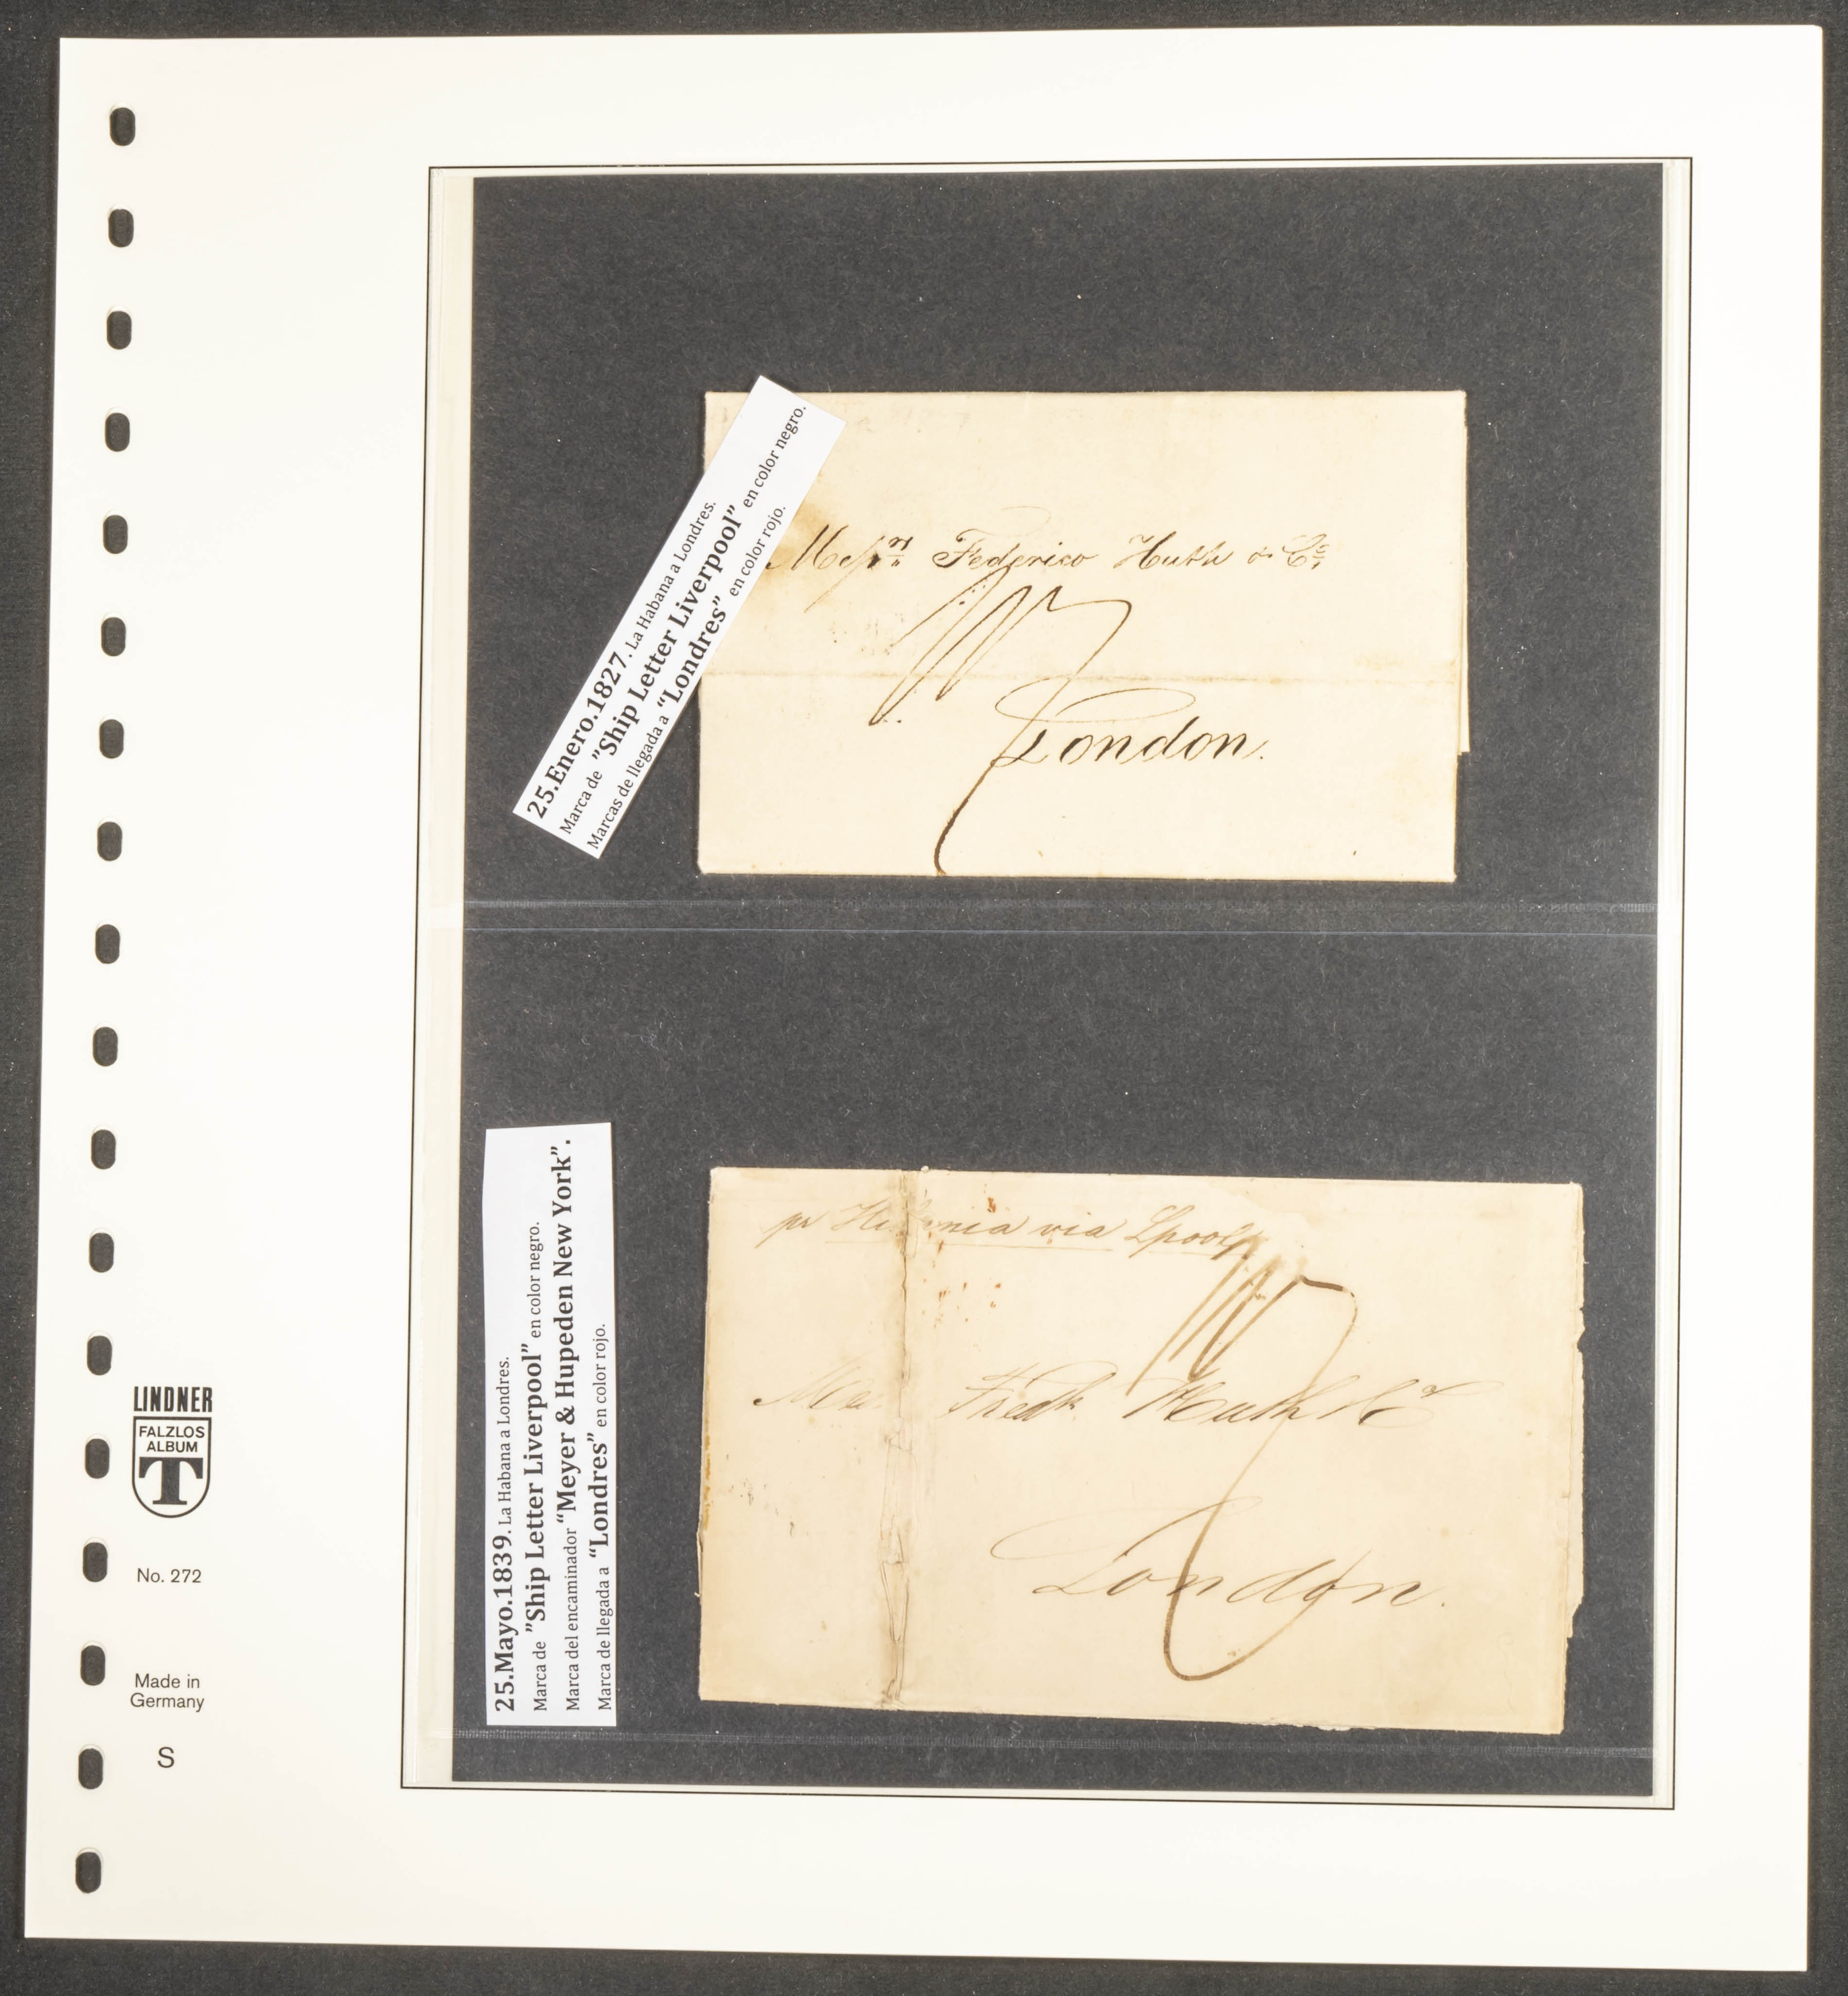 25.Enero.1827. La Habana a Londres.
Marca de "Ship Letter Liverpool" en color negro.
Marcas de llegada a "Londres" en color rojo.
Federico Huth & Co.
London.
25.Mayo.1839. La Habana a Londres.
Marca de "Ship Letter Liverpool" en color negro.
Marca del encaminador "Meyer & Hupeden New York".
Marca de llegada a "Londres" en color rojo.
via Lpool
Fredk Huth & Co
London.
LINDNER
FALZLOS
ALBUM
T
No. 272
Made in
Germany
S